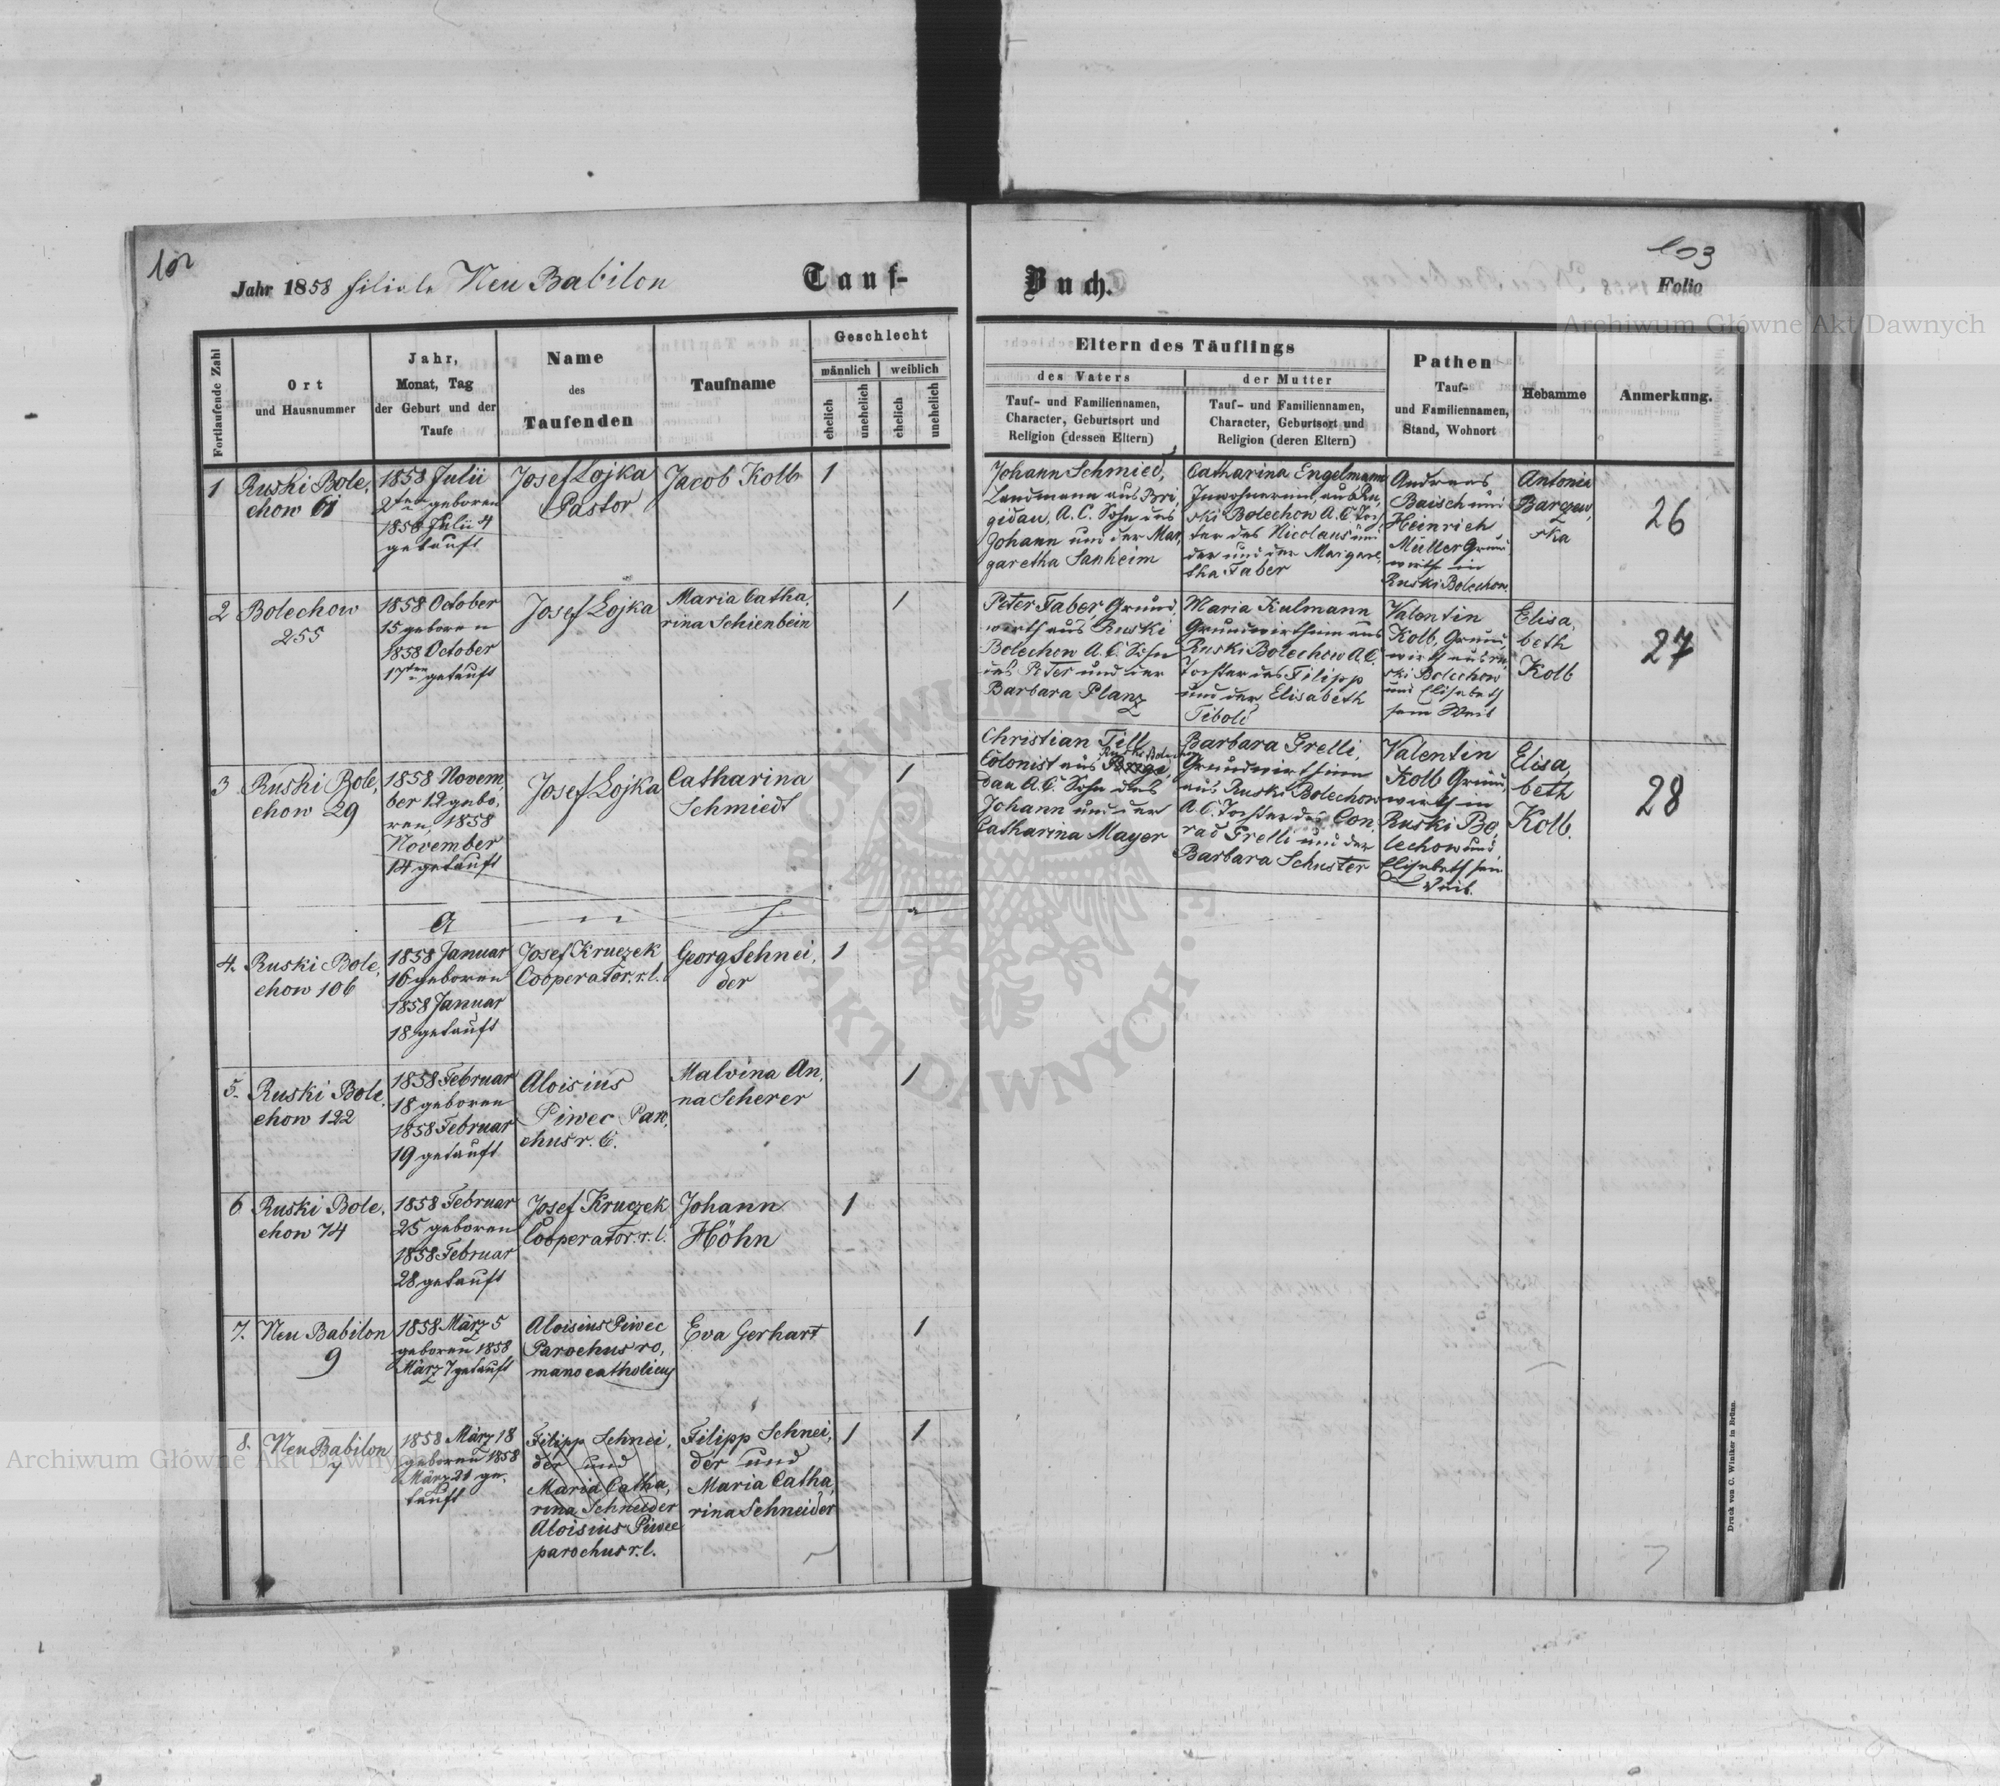 102
Jahr 1858 filiale Neu Babilon
Tauf-
Fortlaufende Zahl
Ort
und Hausnummer
Jahr,
Monat, Tag
der Geburt und der
Taufe
Name
des
Taufenden
Taufname
Geschlecht
männlich
weiblich
ehelich
unehelich
ehelich
unehelich
1
Ruski Bole,
chow 61
1858 Julii
2ten geboren
1858 Julii 4
getauft
Josef Lojka
Pastor
Jacob Kolb
1
2
Bolechow
255
1858 October
15 geboren
1858 October
17ten getauft
Josef Lojka
Maria Catha,
rina Schienbein
1
3
Ruski Bole,
chow 29
1858 Novem,
ber 12 gebo,
ren, 1858
November
14 getauft
Josef Lojka
Catharina
Schmiedt
1
4.
Ruski Bole,
chow 106
1858 Januar
16 geboren
1858 Januar
18 getauft
Josef Kruczek
Cooperator. r. l.
Georg Schnei,
der
1
5.
Ruski Bole,
chow 122
1858 Februar
18 geboren
1858 Februar
19 getauft
Aloisius
Piwec Paro,
chus r. l.
Malvina An,
na Scherer
1
6
Ruski Bole,
chow 74
1858 Februar
25 geboren
1858 Februar
28 getauft
Josef Kruczek
Cooperator. r. l.
Johann
Höhn
1
7.
Neu Babilon
9
1858 März 5
geboren 1858
März 7 getauft
Aloisius Piwec
Parochus ro,
mano catholicus
Eva Gerhart
1
8.
Neu Babilon
7
1858 März 18
geboren 1858
März 21 ge,
tauft
Filipp Schnei,
der und
Maria Catha,
rina Schneider
Aloisius Piwec
parochus r. l.
Filipp Schnei,
der und
Maria Catha,
rina Schneider
1
1
103
Buch.
Folio
Eltern des Täuflings
des Vaters
Tauf- und Familiennamen,
Character, Geburtsort und
Religion (dessen Eltern)
der Mutter
Tauf- und Familiennamen,
Character, Geburtsort und
Religion (deren Eltern)
Pathen
Tauf-
und Familiennamen,
Stand, Wohnort
Hebamme
Anmerkung.
Johann Schmied,
Landmann aus Bri
gidau, A. C. Sohn des
Johann und der Mar,
garetha Sanheim
Catharina Engelmann
Inwohnerin aus Ru,
ski Bolechow A. C. Toch
ter des Nicolaus
der und der Margare,
tha Faber
Andreas
Baisch und
Heinrich
Müller Grund
wirth in
Ruski Bolechow
Antonia
Barczew,
ska
26
Peter Faber Grund,
wirth aus Ruski
Bolechow A. C. Sohn
des Peter und der
Barbara Planz
Maria Kulmann
Grundwirthin aus
Ruski Bolechow A. C.
Tochter des Filipp
und der Elisabeth
Tibold
Valentin
Kolb, Grund,
wirth aus Ru,
ski Bolechow
und Elisabeth
sein Weib
Elisa,
beth
Kolb
27
Christian Till
Colonist aus Ruski Bolechow
dau A. C. Sohn des
Johann und der
Catharina Mayer
Barbara Grelli,
Grundwirthinn
aus Ruski Bolechow
A. C. Tochter des Con,
rad Grelli und der
Barbara Schuster
Valentin
Kolb Grund,
wirth in
Ruski Bo,
lechow und
Elisabeth sein
Weib.
Elisa,
beth
Kolb.
28
Druck von C. Winiker in Brünn.
Archiwum Główne Akt Dawnych
Archiwum Główne Akt Dawnych
ARCHIWUM GŁÓWNE AKT DAWNYCH